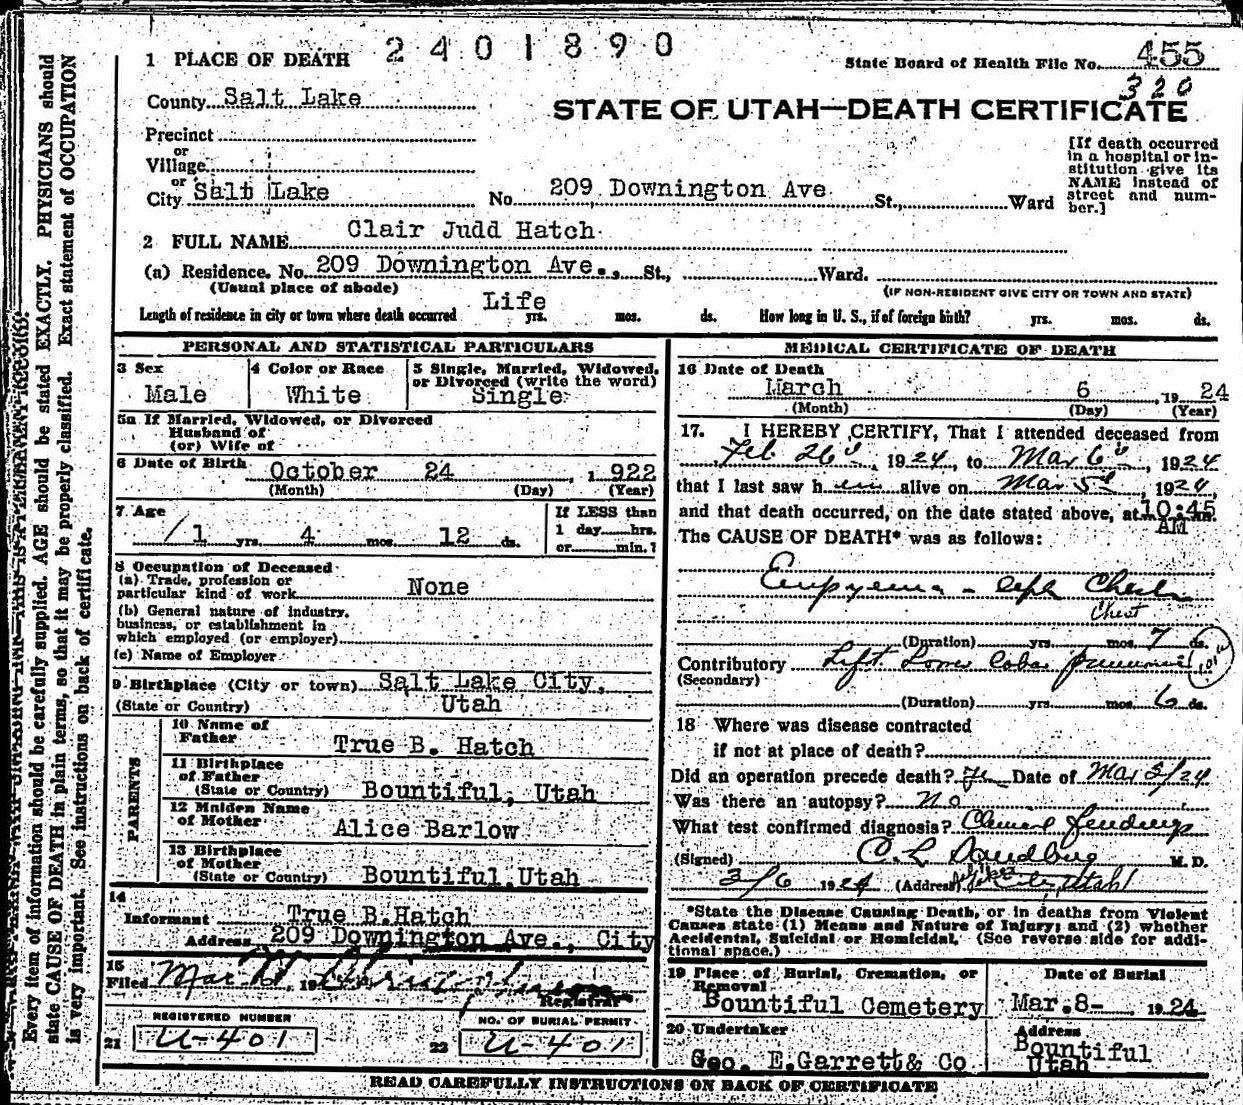 2401890
1 PLACE OF DEATH
State Board of Health File No. 455
320
County Salt Lake
STATE OF UTAH—DEATH CERTIFICATE
Precinct
or
Village
or
City Salt Lake No. 209 Downington Ave St., Ward
[If death occurred in a hospital or institution give its NAME instead of street and number.]
2 FULL NAME Clair Judd Hatch
(a) Residence. No. 209 Downington Ave., St., Ward.
(Usual place of abode)
(IF NON-RESIDENT GIVE CITY OR TOWN AND STATE)
Length of residence in city or town where death occurred Life yrs. mos. ds. How long in U. S., if of foreign birth? yrs. mos. ds.
PERSONAL AND STATISTICAL PARTICULARS
3 Sex
Male
4 Color or Race
White
5 Single, Married, Widowed, or Divorced (write the word)
Single
5a If Married, Widowed, or Divorced
Husband of
(or) Wife of
6 Date of Birth October 24, 1922
(Month) (Day) (Year)
7 Age
1 yrs. 4 mos. 12 ds.
If LESS than
1 day hrs.
or min.?
8 Occupation of Deceased
(a) Trade, profession or
particular kind of work None
(b) General nature of industry,
business, or establishment in
which employed (or employer)
(c) Name of Employer
9 Birthplace (City or town) Salt Lake City,
(State or Country) Utah
PARENTS
10 Name of
Father True B. Hatch
11 Birthplace
of Father
(State or Country) Bountiful, Utah
12 Maiden Name
of Mother Alice Barlow
13 Birthplace
of Mother
(State or Country) Bountiful, Utah
14
Informant True B. Hatch
Address 209 Downington Ave., City
15
Filed Mar 19
Registrar
REGISTERED NUMBER
21 U-401
NO. OF BURIAL PERMIT
22 U-401
MEDICAL CERTIFICATE OF DEATH
16 Date of Death
March 6, 1924
(Month) (Day) (Year)
17. I HEREBY CERTIFY, That I attended deceased from
Feb 26, 1924, to Mar 6, 1924
that I last saw him alive on Mar 5, 1924,
and that death occurred, on the date stated above, at 10:45 m.
AM
The CAUSE OF DEATH* was as follows:
Empyema - left Chest
Chest
(Duration) yrs. mos. 7 ds.
Contributory Left Lower lobar pneumonia
(Secondary)
(Duration) yrs. mos. 6 ds.
18 Where was disease contracted
if not at place of death?
Did an operation precede death? Yes Date of Mar 5/24
Was there an autopsy? No
What test confirmed diagnosis? Clinical findings
(Signed) C. L. Sandberg M. D.
3/6 1924 (Address) City, Utah
*State the Disease Causing Death, or in deaths from Violent
Causes state (1) Means and Nature of Injury; and (2) whether
Accidental, Suicidal or Homicidal. (See reverse side for addi-
tional space.)
19 Place of Burial, Cremation, or
Removal
Bountiful Cemetery
Date of Burial
Mar. 8- 1924
20 Undertaker
Geo. E. Garrett & Co
Address
Bountiful
Utah
READ CAREFULLY INSTRUCTIONS ON BACK OF CERTIFICATE
Every item of information should be carefully supplied. AGE should be stated EXACTLY. PHYSICIANS should
state CAUSE OF DEATH in plain terms, so that it may be properly classified. Exact statement of OCCUPATION
is very important. See instructions on back of certificate.